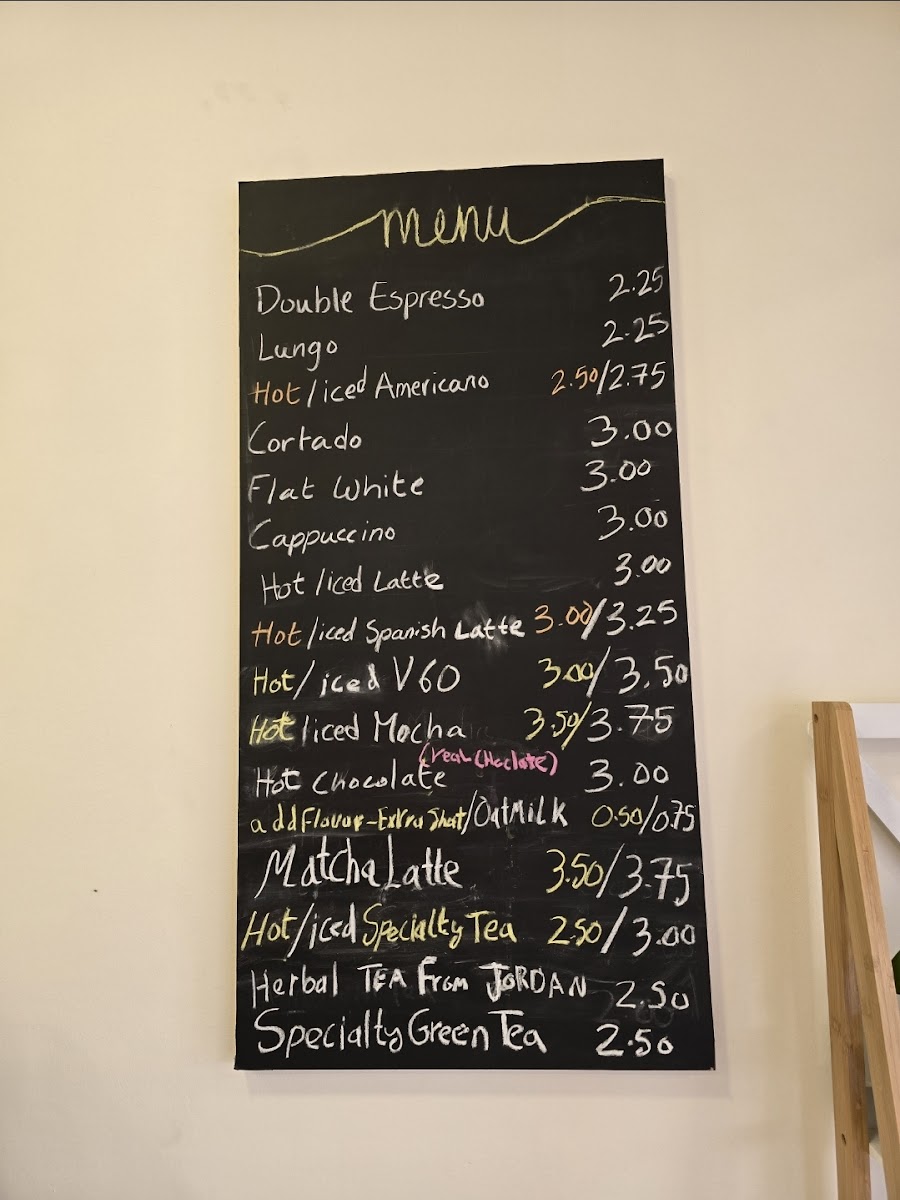 menu
Double Espresso 2.25
Lungo 2.25
Hot/iced Americano 2.50/2.75
Cortado 3.00
Flat White 3.00
Cappuccino 3.00
Hot/iced Latte 3.00
Hot/iced Spanish Latte 3.00/3.25
Hot/iced V60 3.00/3.50
Hot/iced Mocha 3.50/3.75
(real CHoclate)
Hot Chocolate 3.00
add Flavor-Extra Shot/OatMilk 0.50/0.75
Matcha Latte 3.50/3.75
Hot/iced Specialty Tea 2.50/3.00
Herbal TEA From JORDAN 2.50
Specialty Green Tea 2.50